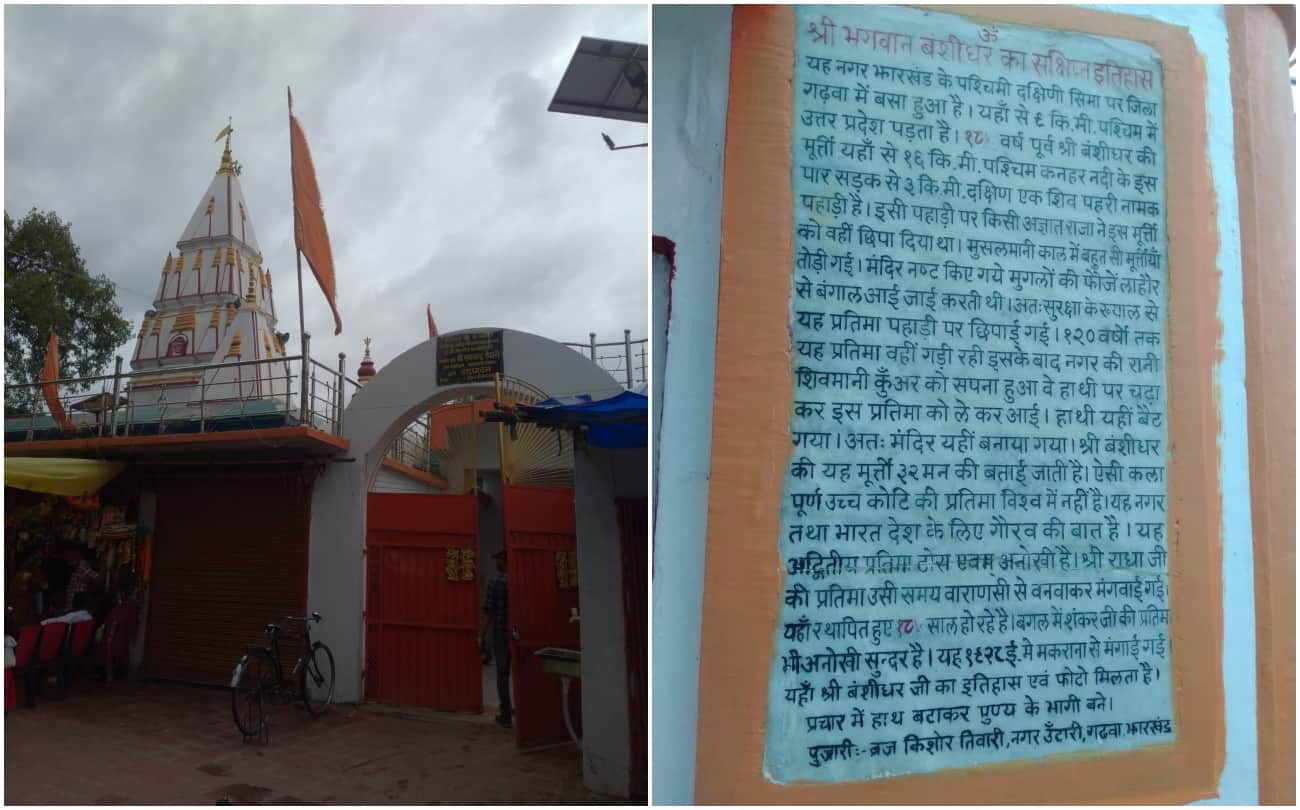 ॐ
श्री भगवान बंशीधर का सक्षिप्त इतिहास
यह नगर झारखंड के पश्चिमी दक्षिणी सिमा पर जिला
गढ़वा में बसा हुआ है। यहाँ से ६ कि.मी. पश्चिम में
उत्तर प्रदेश पड़ता है। वर्ष पूर्व श्री बंशीधर की
मूर्ती यहाँ से १६ कि.मी. पश्चिम कनहर नदी के इस
पार सड़क से ३ कि.मी. दक्षिण एक शिव पहरी नामक
पहाड़ी है। इसी पहाड़ी पर किसी अज्ञात राजा ने इस मूर्त्ती
को वहीं छिपा दिया था। मुसलमानी काल में बहुत सी मूर्त्तीयाँ
तोड़ी गई। मंदिर नष्ट किए गये मुगलों की फौजें लाहौर
से बंगाल आई जाई करती थी।अतः सुरक्षा के रूपाल से
यह प्रतिमा पहाड़ी पर छिपाई गई। १२० वर्षो तक
यह प्रतिमा वहीं गड़ी रही इसके बाद नगर की रानी
शिवमानी कुँअर को सपना हुआ वे हाथी पर चढ़ा
कर इस प्रतिमा को ले कर आई। हाथी यहीं बैट
गया। अतः मंदिर यहीं बनाया गया। श्री बंशीधर
की यह मूर्त्ती ३२ मन की बताई जाती है। ऐसी कला
पूर्ण उच्च कोटि की प्रतिमा विश्व में नहीं है। यह नगर
तथा भारत देश के लिए गौरव की बात है। यह
अद्वितीय प्रतिमा टोस एवम् अनोखी है। श्री राधा जी
की प्रतिमा उसी समय वाराणसी से वनवाकर मंगवाई गई।
यहाँ स्थापित हुए साल हो रहे है। बगल में शंकर जी की प्रतिमा
भी अनोखी सुन्दर है। यह १९२८ ई. मे मकराना से मंगाई गई।
यहाँ श्री बंशीधर जी का इतिहास एवं फोटो मिलता है।
प्रचार में हाथ बटाकर पुण्य के भागी बने।
पुजारी:- ब्रज किशोर तिवारी, नगर उँटारी, गढवा झारखंड